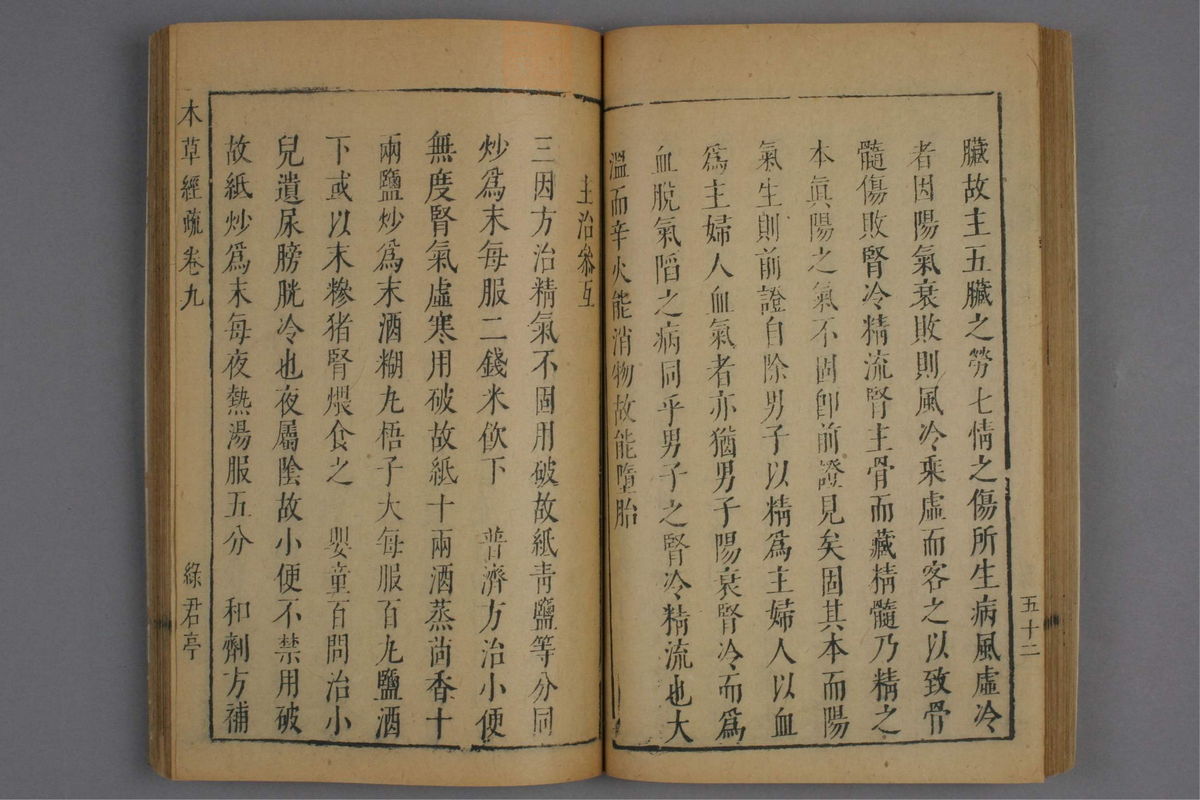 臟故主五臟之勞七情之傷所生病風虛冷
者因陽氣衰敗則風冷乘虛而客之以致骨
髓傷敗腎冷精流腎主骨而藏精髓乃精之
本眞陽之氣不固卽前證見矣固其本而陽
氣生則前證自除男子以精爲主婦人以血
爲主婦人血氣者亦猶男子陽衰腎冷而爲
血脫氣陷之病同乎男子之腎冷精流也大
溫而辛火能消物故能墮胎
五十二
主治參互
三因方治精氣不固用破故紙靑鹽等分同
炒爲末每服二錢米飮下 普濟方治小便
無度腎氣虛寒用破故紙十兩酒蒸茴香十
兩鹽炒爲末酒糊丸梧子大每服百丸鹽酒
下或以末糝猪腎煨食之 嬰童百問治小
兒遺尿膀胱冷也夜屬陰故小便不禁用破
故紙炒爲末每夜熱湯服五分 和劑方補
本草經疏卷九
綠君亭